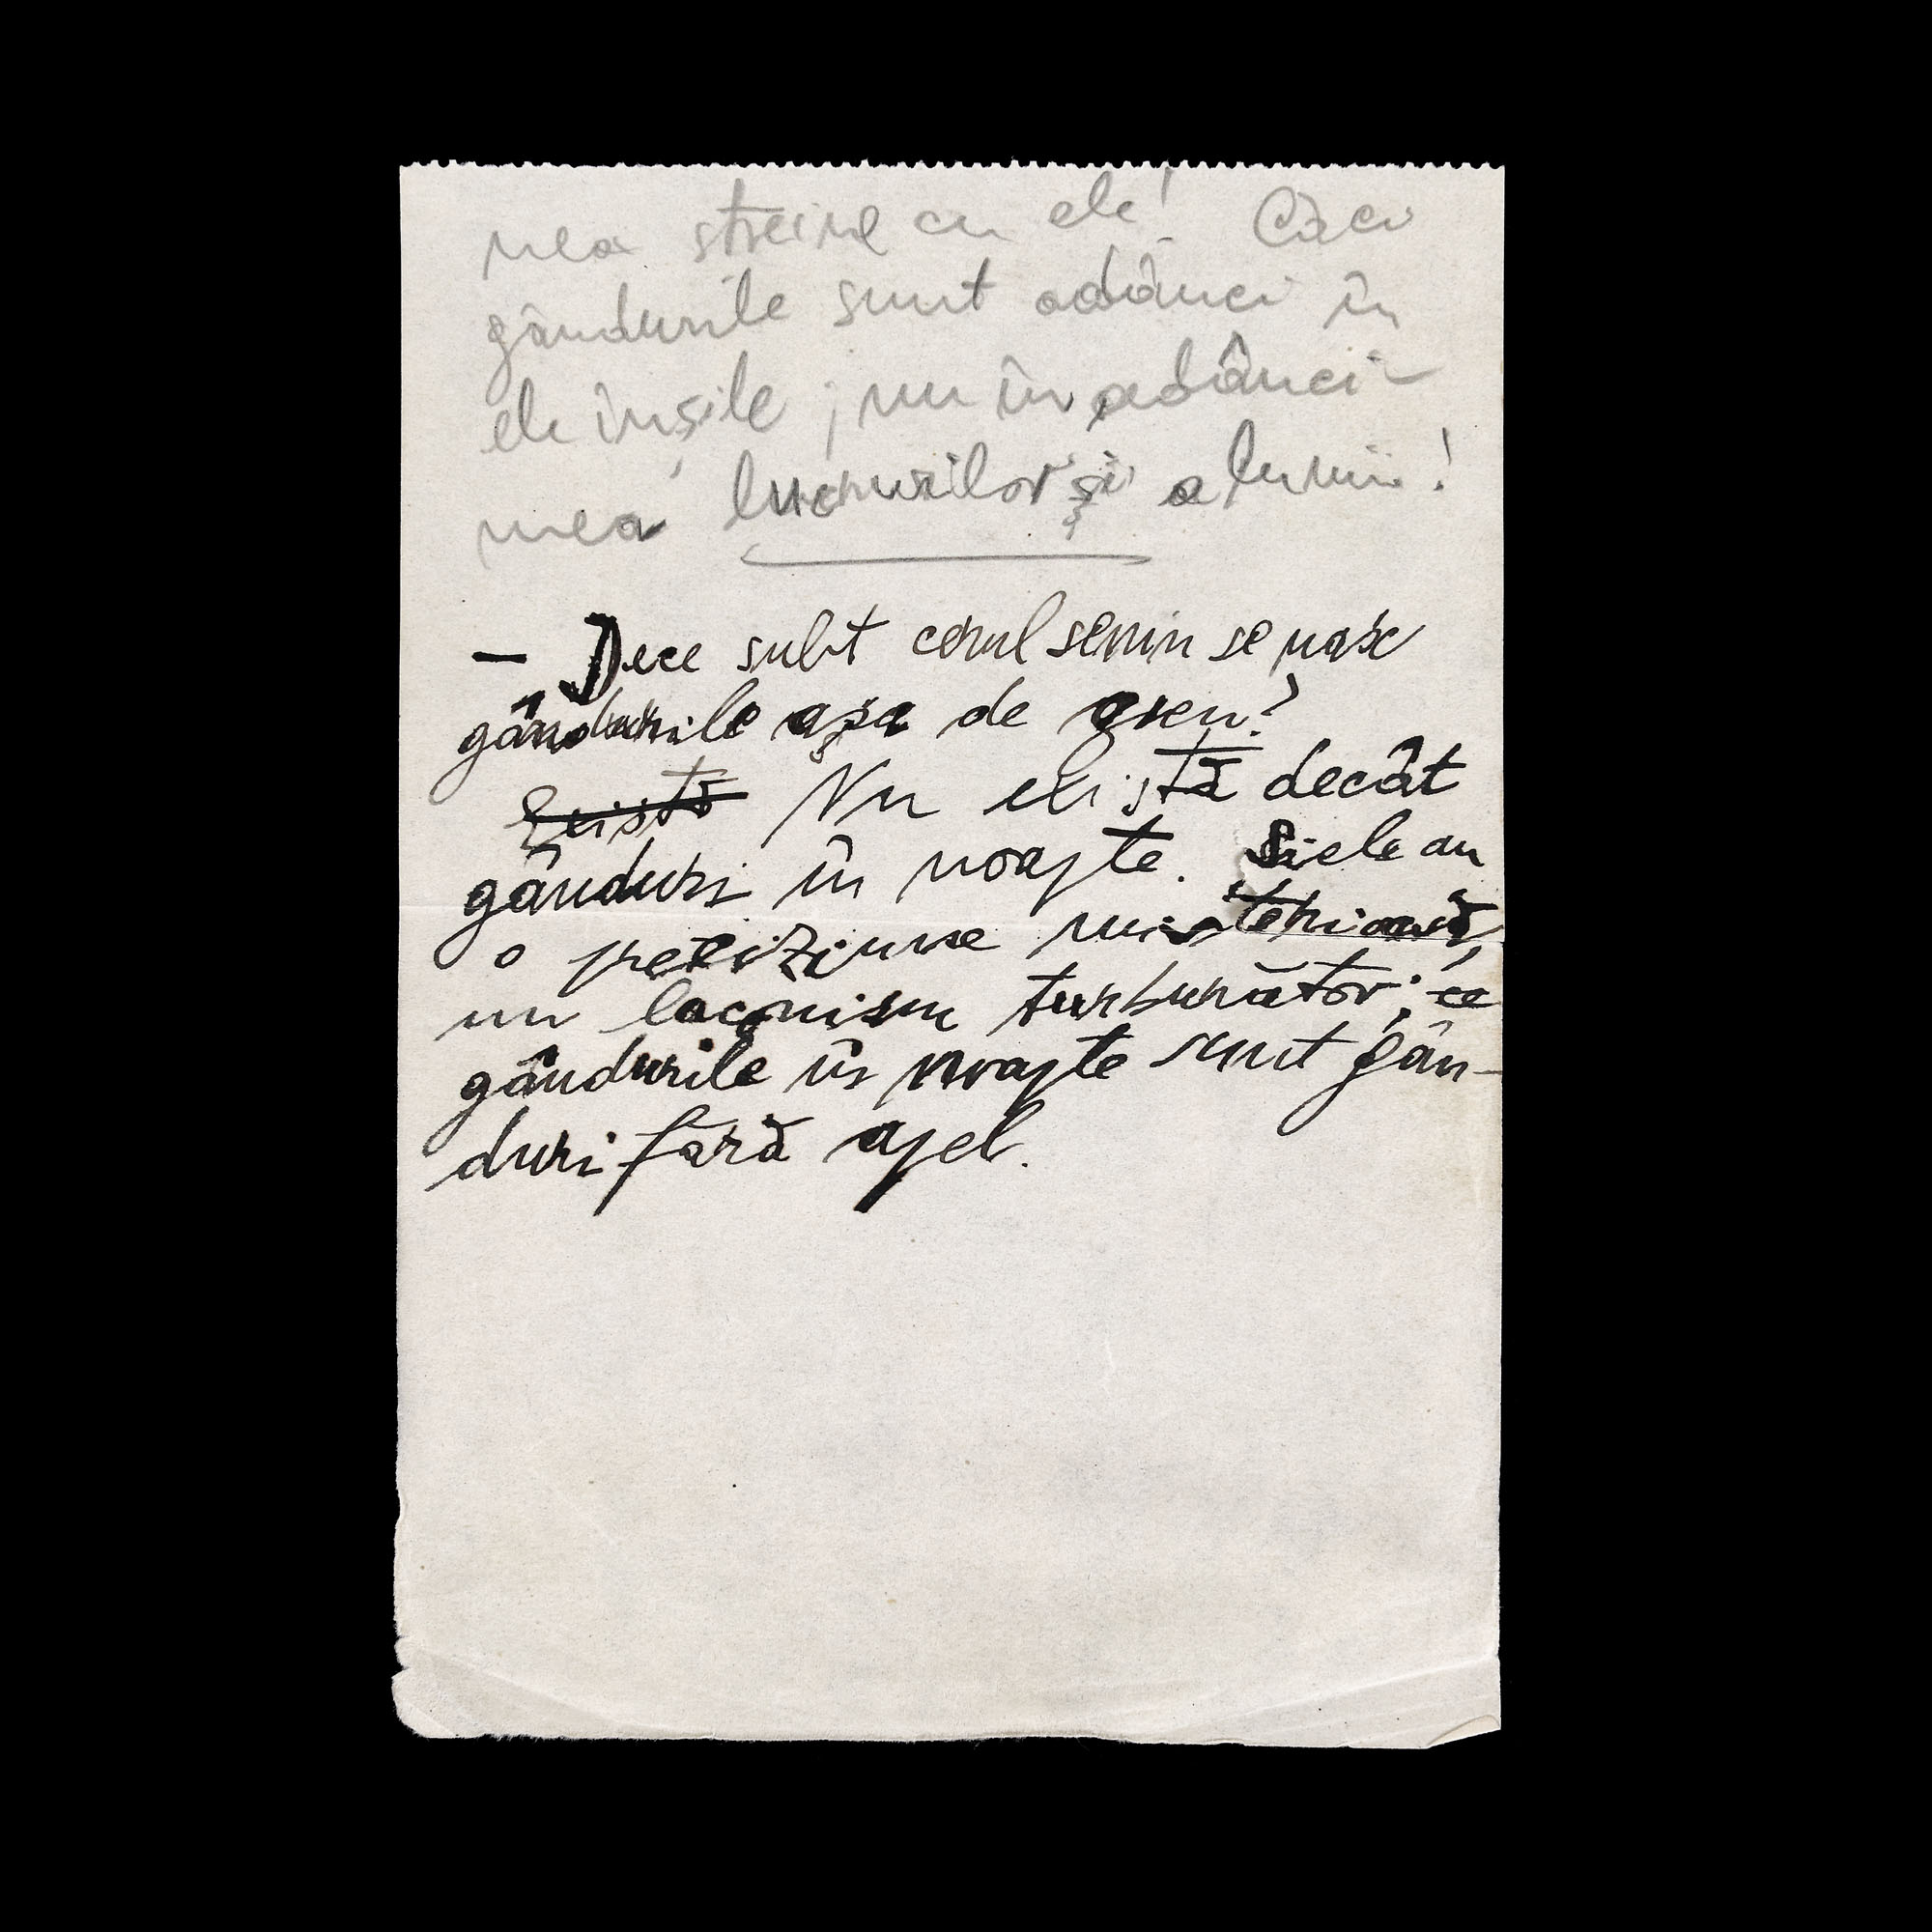 mea streine cu ele! Căci
gândurile sunt adânci în
ele însile; nu în adânci-
mea lucrurilor și a lumii!
— Dece subt cerul senin se nasc
gândurile așa de greu?
Există Nu există decât
gânduri în noapte. Si ele au
o preciziune misterioasă,
un laconism turburător; ce
gândurile în noapte sunt gân-
duri fără apel.